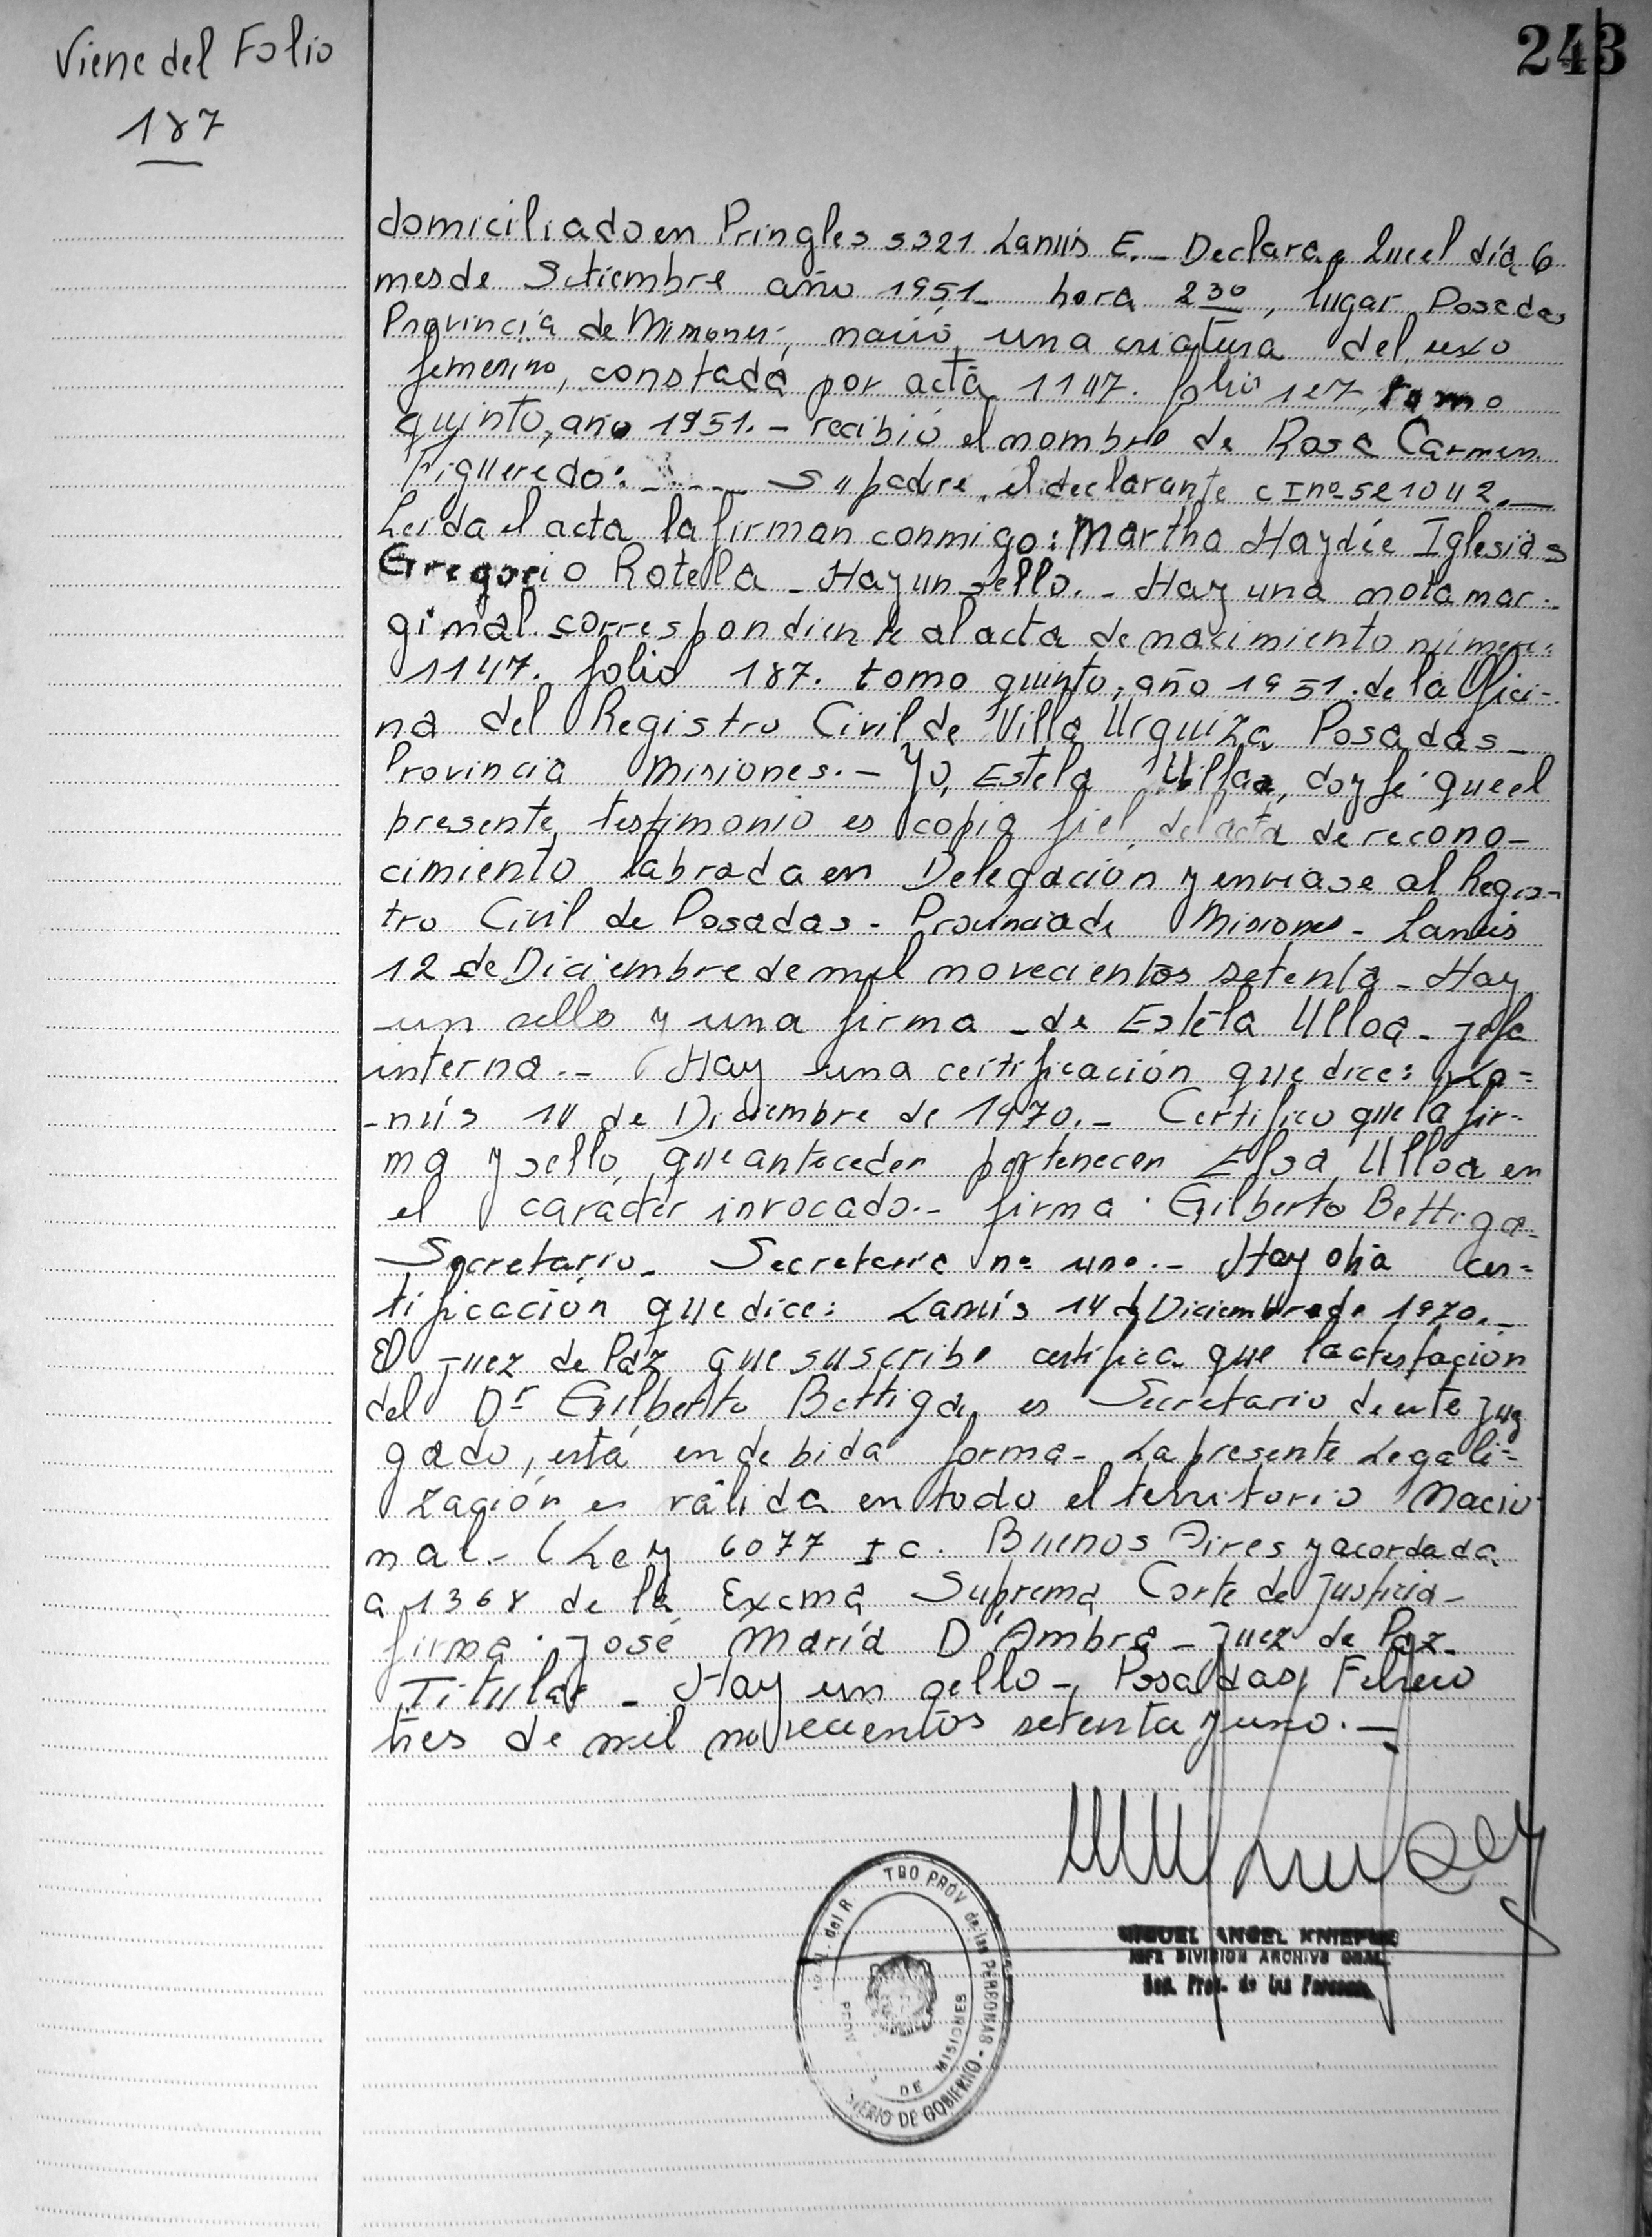 Viene del Folio
187
243
domiciliado en Pringles 5321 Lanús E. - Declara: que el día 6
mes de Setiembre año 1951 - hora 2 30, lugar Posadas
Provincia de Misiones, nació una criatura del sexo
femenino, constada por acta 1147. folio 187, tomo
quinto, año 1951. - recibió el nombre de Rosa Carmen
Figueredo: - - - - Su padre, el declarante C I nº 521042. -
Leída el acta la firman conmigo: Martha Haydée Iglesias
Gregorio Rotella - Hay un sello. - Hay una nota mar-
ginal correspondiente al acta de nacimiento número:
1147. folio 187. tomo quinto, año 1951. de la Ofici-
na del Registro Civil de Villa Urquiza Posadas -
Provincia Misiones. - Yo, Estela Ulloa, doy fé que el
presente testimonio es copia fiel del acta de recono-
cimiento labrada en Delegación y enviase al Regis-
tro Civil de Posadas - Provincia de Misiones - Lanús
12 de Diciembre de mil novecientos setenta - Hay
un sello y una firma - de Estela Ulloa - jefe
interna. - Hay una certificación que dice: La-
-nús 14 de Diciembre de 1970. - Certifico que la fir-
ma y sello que anteceden pertenecen Elsa Ulloa en
el caracter invocado. - firma · Gilberto Bettiga -
Secretario - Secretaría nº uno. - Hay otra cer-
tificación que dice: Lanús 14 de Diciembre de 1970. -
El Juez de Paz que suscribe certifica que la atestación
del Dr Gilberto Bettiga, es Secretario de este Juz
gado, está en debida forma - La presente Legali-
zación es válida en todo el territorio Nacio-
nal - (Ley 6077 I C. Buenos Aires y acordada
a 1368 de la Excma Suprema Corte de Justicia -
firma · José María D'Ambra - Juez de Paz -
Titular - Hay un sello -, Posadas, Febrero
tres de mil novecientos setenta y uno. -
MIGUEL ANGEL
JEFE DIVISION ARCHIVO GRAL.
Reg. Prov. de las Personas
del R TRO PROV de las PERSONAS - STERIO DE GOBIERNO
PROV DE MISIONES